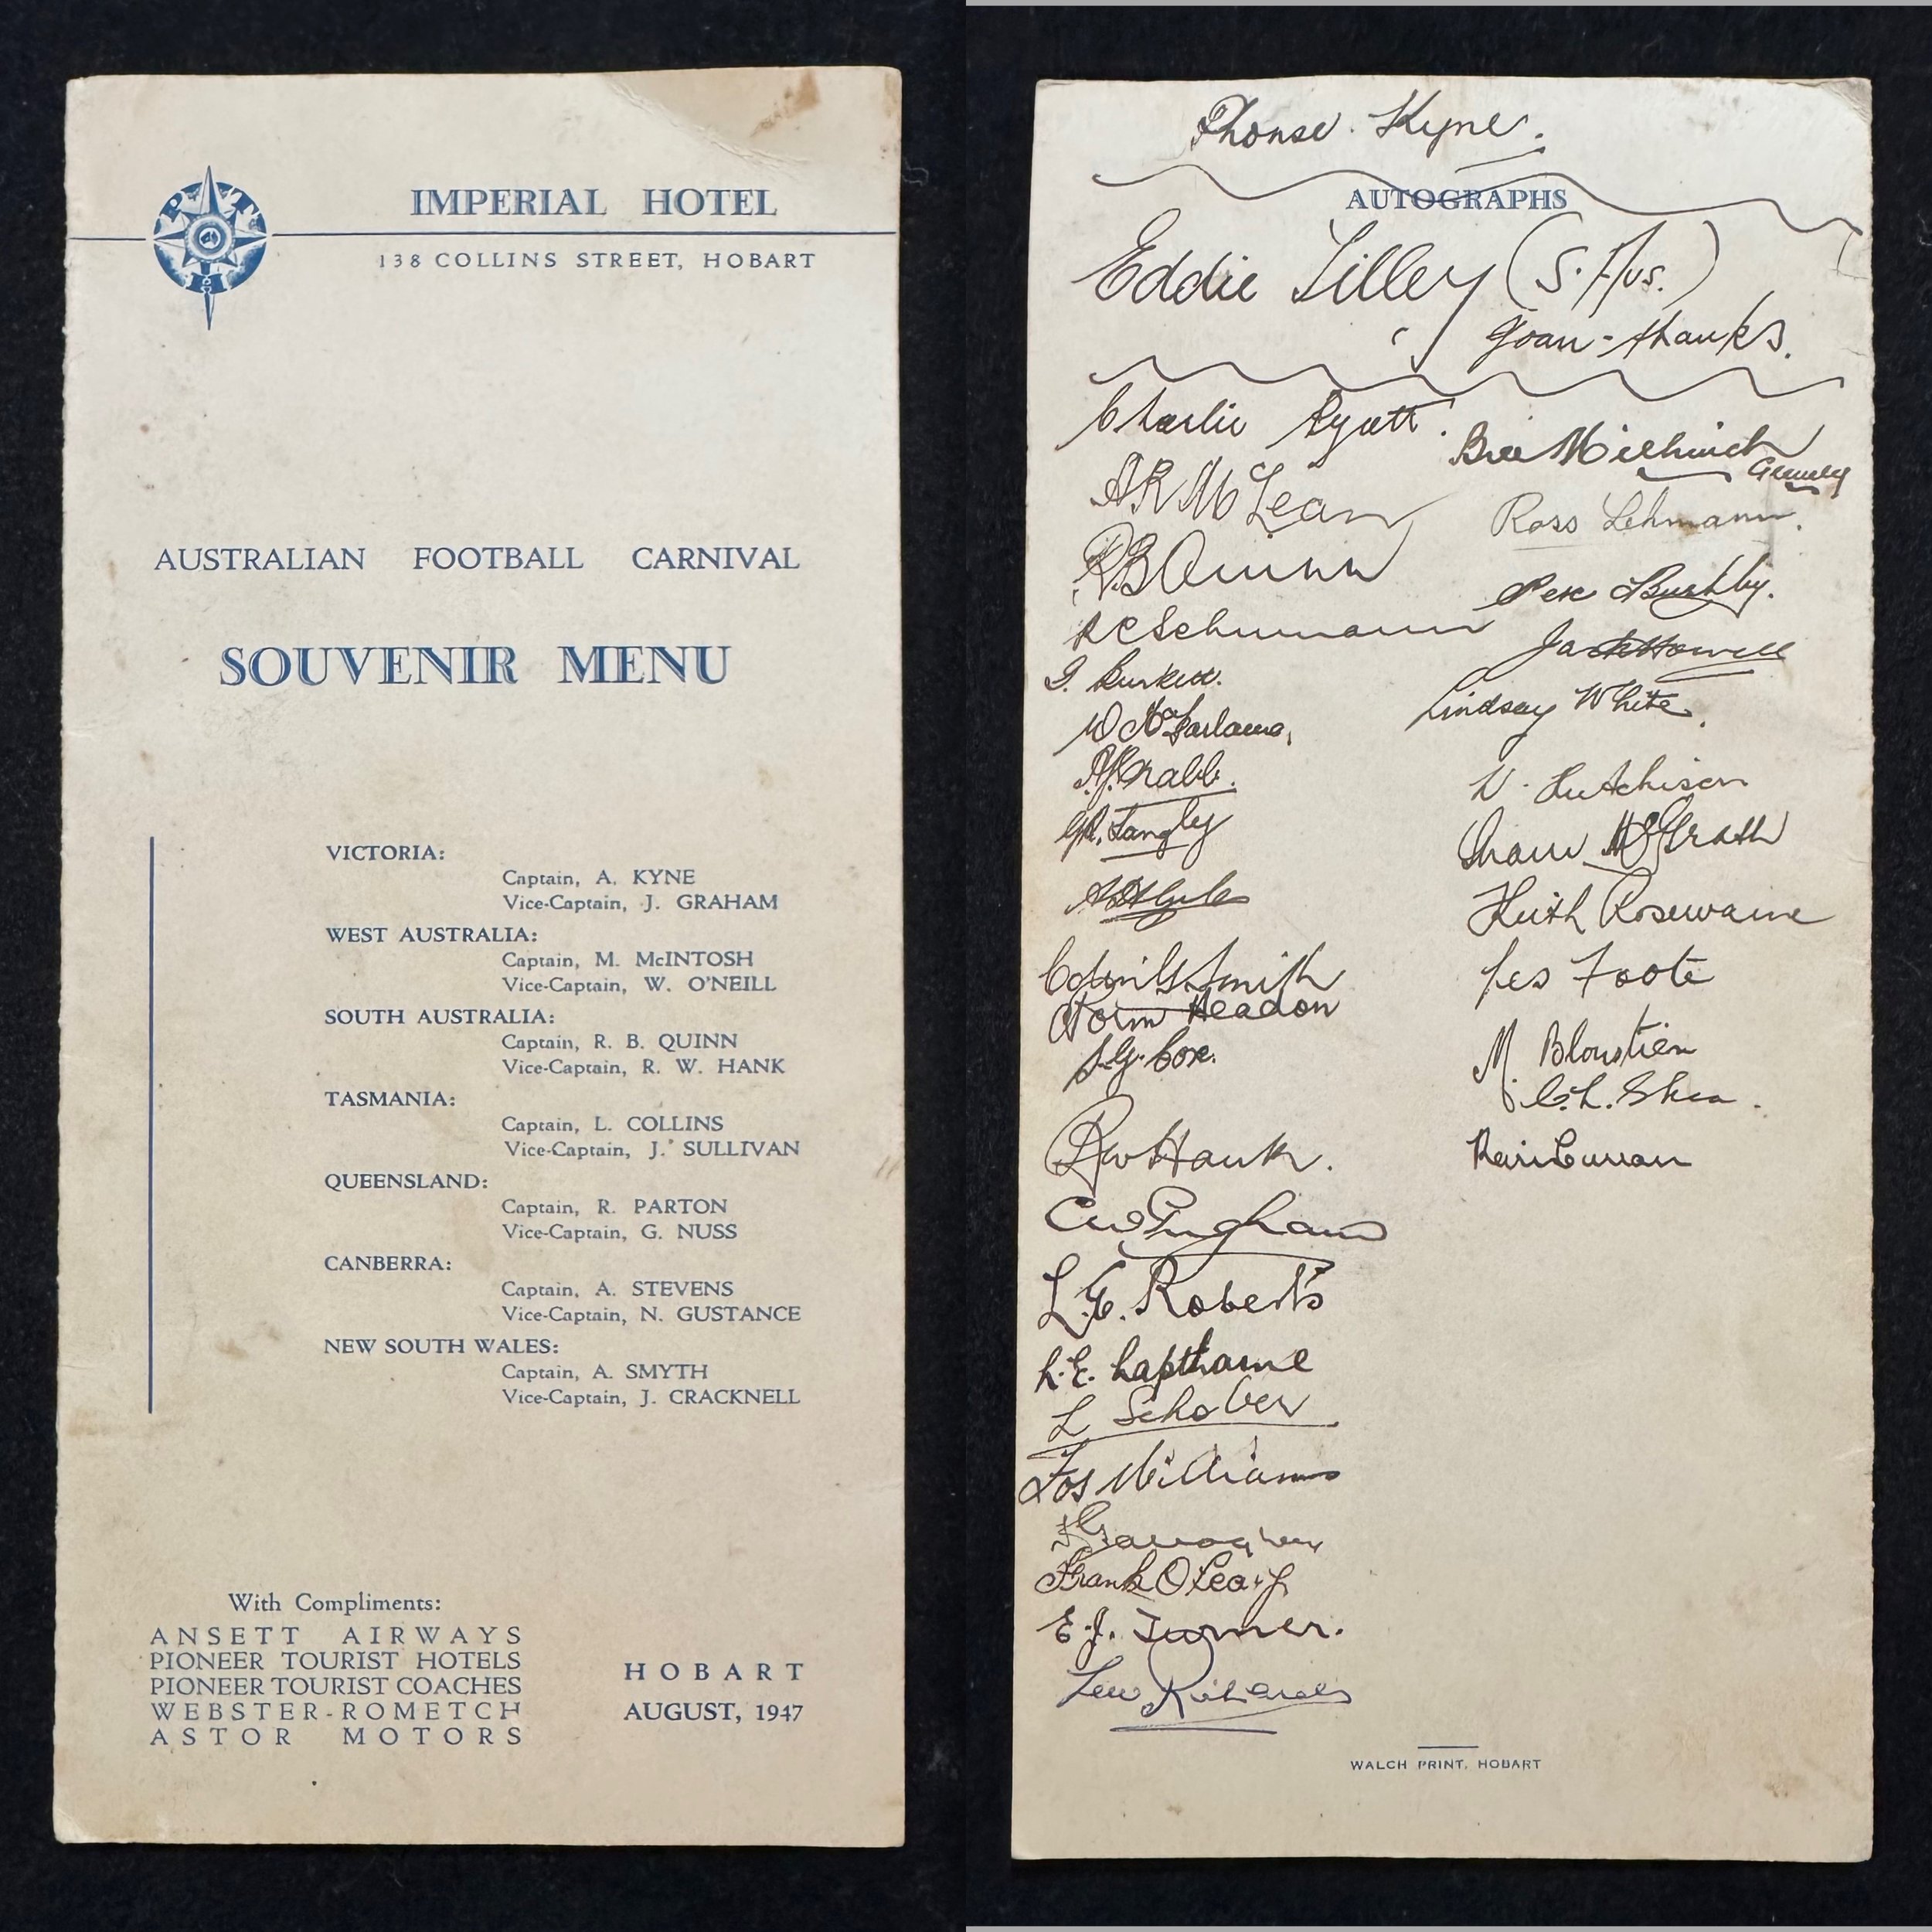 IMPERIAL HOTEL
138 COLLINS STREET, HOBART
AUSTRALIAN FOOTBALL CARNIVAL
SOUVENIR MENU
VICTORIA:
Captain, A. KYNE
Vice-Captain, J. GRAHAM
WEST AUSTRALIA:
Captain, M. McINTOSH
Vice-Captain, W. O'NEILL
SOUTH AUSTRALIA:
Captain, R. B. QUINN
Vice-Captain, R. W. HANK
TASMANIA:
Captain, L. COLLINS
Vice-Captain, J. SULLIVAN
QUEENSLAND:
Captain, R. PARTON
Vice-Captain, G. NUSS
CANBERRA:
Captain, A. STEVENS
Vice-Captain, N. GUSTANCE
NEW SOUTH WALES:
Captain, A. SMYTH
Vice-Captain, J. CRACKNELL
With Compliments:
ANSETT AIRWAYS
PIONEER TOURIST HOTELS
PIONEER TOURIST COACHES
WEBSTER-ROMETCH
ASTOR MOTORS
HOBART
AUGUST, 1947
Phonse Kyne.
AUTOGRAPHS
Eddie Tilley (S. Aus.)
Joan - thanks.
Charlie Pyatt.
A R McLean
R B Quinn
R C Schumann
W McFarlane
Langley
Colin Smith
Norm Headon
Cox.
R W Hank.
C W Pingham
L. G. Roberts
L. E. Lapthorne
L Schober
Fos Williams
Frank O Leary
E. J. Turner.
Lew Richards
Milhinch
Ross Lehmann.
Perc Bushby.
Jack Howell
Lindsay White.
W. Hutchison
Shaun McGrath
Keith Rosewarne
Les Foote
M. Bloustien
C. L. Shea.
Kevin Curran
WALCH PRINT, HOBART